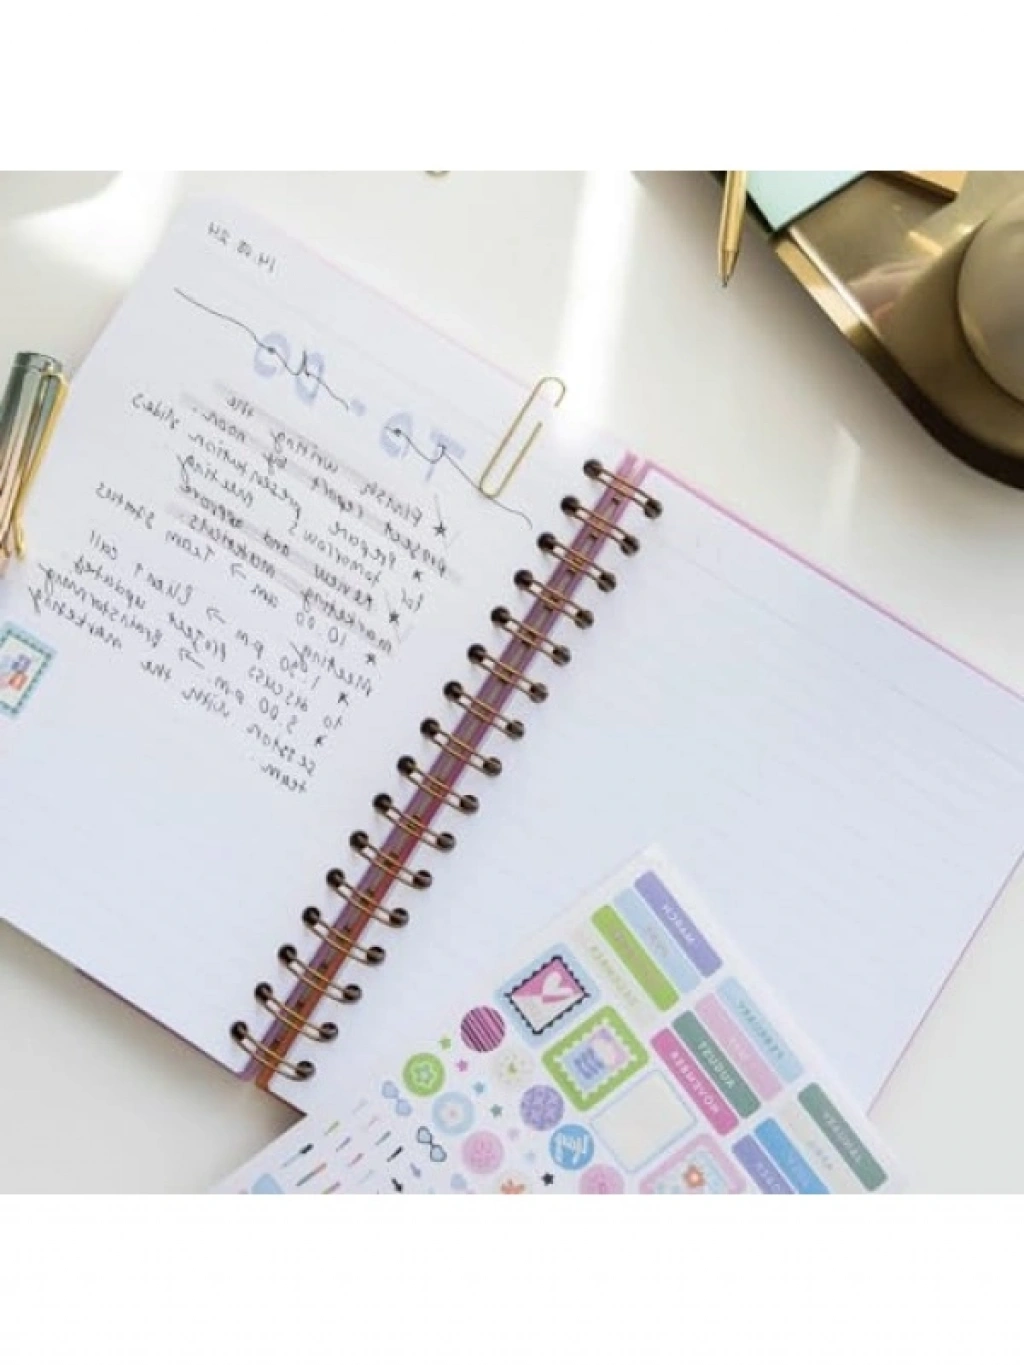 14.02.24
TO-DO
* Finish writing the
project report by noon.
* Prepare presentation slides
for tomorrow's meeting
* Review and approve
marketing materials
* 10.00 am → Team status
meeting
* 1.030 p.m → Client call
to discuss project updates
* 3.00 p.m → Brainstorming
session with the marketing
team.
MARCH
FEBRUARY
AUGUST
NOVEMBER
JANUARY